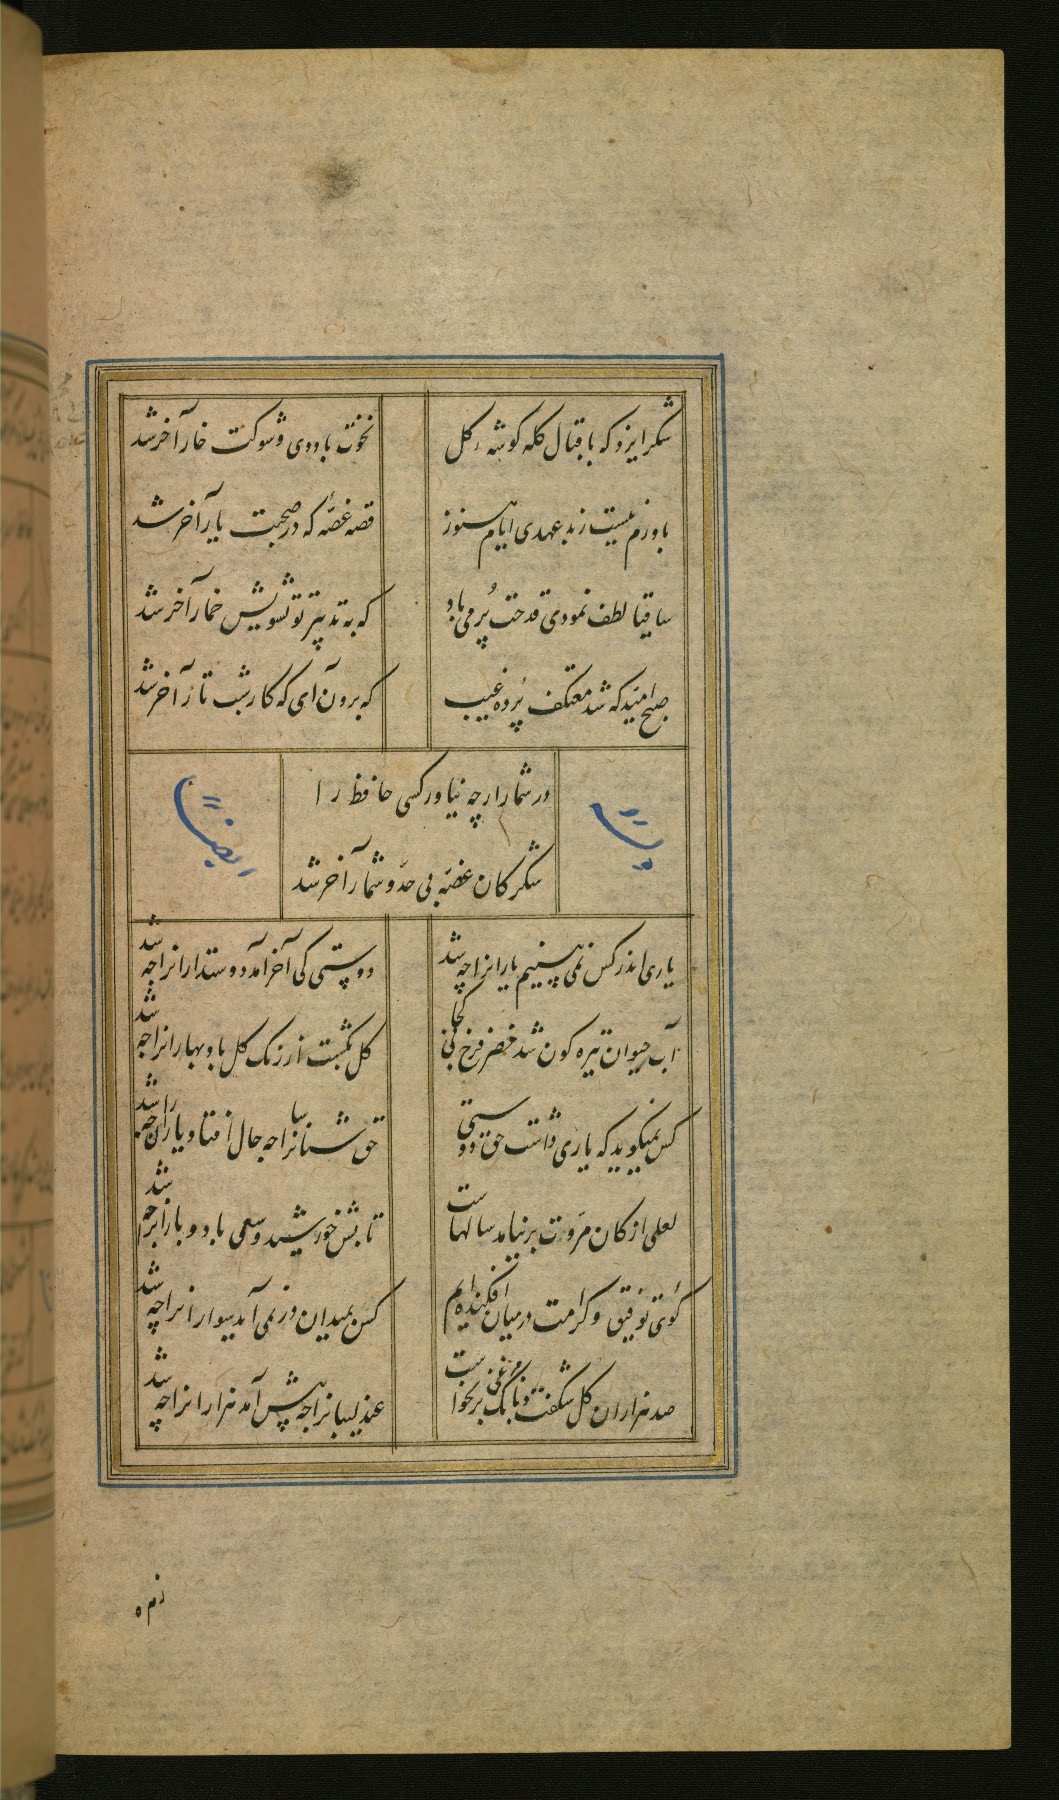 شکر ایزد که باقبال کله گوشه گل
نخوت باد دی و شوکت خار آخر شد
باورم نیست ز بد عهدی ایام هنوز
قصه غصه که در صحبت یار آخر شد
ساقیا لطف نمودی قدحت پُر می باد
که به تدبیر تو تشویش خمار آخر شد
صبح امید که شد معتکف پرده غیب
که برون آی که کار شب تار آخر شد
در شمار ار چه نیاورد کسی حافظ را
شکر کان غصه بی حد و شمار آخر شد
وله
ایضا
یاری اندر کس نمی بینیم یارانرا چه شد
دوستی کی آخر آمد دوستدارانرا چه شد
آب حیوان تیره گون شد خضر فرخ پی کجا
گل بگشت از رنگ گل باد بهارانرا چه شد
کس نمیگوید که یاری داشت حق دوستی
حق شناسانرا چه حال افتاد یارانرا چه شد
لعلی از کان مروت برنیامد سالهاست
تابش خورشید و سعی باد و بارانرا چه شد
گوی توفیق و کرامت در میان افکنده اند
کس بمیدان در نمی آید سوارانرا چه شد
صد هزاران گل شکفت و بانگ مرغی برنخواست
عندلیبانرا چه پیش آمد هزارانرا چه شد